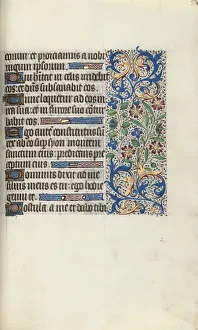 eorum: et proiciamus a nobis
iugum ipsorum.
Qui habitat in celis irridebit
eos: et dominus subsannabit eos.
Tunc loquetur ad eos in
ira sua: et in furore suo contur
babit eos.
Ego autem constitutus sum
rex ab eo super syon montem
sanctum eius: predicans pre
ceptum eius.
Dominus dixit ad me
filius meus es tu: ego hodie
genui te.
Postula a me et dabo tibi